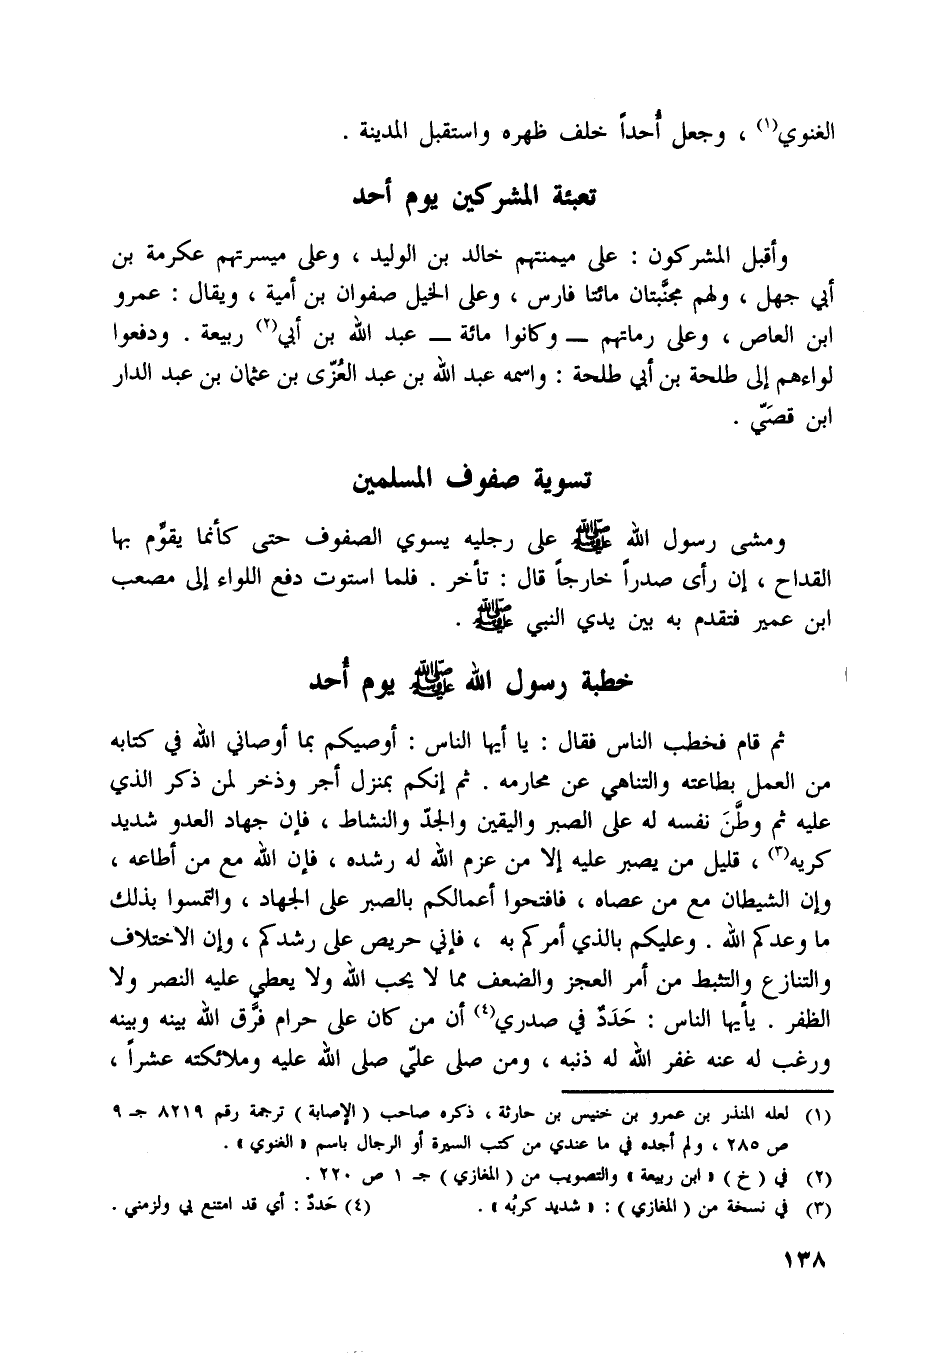 الغنوي(١) ، وجعل أُحداً خلف ظهره واستقبل المدينة .
تعبئة المشركين يوم أحد
وأقبل المشركون : على ميمنتهم خالد بن الوليد ، وعلى ميسرتهم عكرمة بن
أبي جهل ، ولهم مجنَّبتان مائتا فارس ، وعلى الخيل صفوان بن أمية ، ويقال : عمرو
ابن العاص ، وعلى رماتهم — وكانوا مائة — عبد الله بن أبي(٢) ربيعة . ودفعوا
لواءهم إلى طلحة بن أبي طلحة : واسمه عبد الله بن عبد العُزّى بن عثمان بن عبد الدار
ابن قصَيّ .
تسوية صفوف المسلمين
ومشى رسول الله ﷺ على رجليه يسوي الصفوف حتى كأنما يقوِّم بها
القداح ، إن رأى صدراً خارجاً قال : تأخر . فلما استوت دفع اللواء إلى مصعب
ابن عمير فتقدم به بين يدي النبي ﷺ .
خطبة رسول الله ﷺ يوم أُحد
ثم قام فخطب الناس فقال : يا أيها الناس : أوصيكم بما أوصاني الله في كتابه
من العمل بطاعته والتناهي عن محارمه . ثم إنكم بمنزل أجر وذخر لمن ذكر الذي
عليه ثم وطَّنَ نفسه له على الصبر واليقين والجدّ والنشاط ، فإن جهاد العدو شديد
كريه(٣) ، قليل من يصبر عليه إلا من عزم الله له رشده ، فإن الله مع من أطاعه ،
وإن الشيطان مع من عصاه ، فافتحوا أعمالكم بالصبر على الجهاد ، والتمسوا بذلك
ما وعدكم الله . وعليكم بالذي أمركم به ، فإني حريص على رشدكم ، وإن الاختلاف
والتنازع والتثبط من أمر العجز والضعف مما لا يحب الله ولا يعطي عليه النصر ولا
الظفر . يأيها الناس : حَدَدٌ في صدري(٤) أن من كان على حرام فرَّق الله بينه وبينه
ورغب له عنه غفر الله له ذنبه ، ومن صلى عليّ صلى الله عليه وملائكته عشراً ،
(١) لعله المنذر بن عمرو بن خنيس بن حارثة ، ذكره صاحب ( الإصابة ) ترجمة رقم ٨٢١٩ جـ ٩
ص ٢٨٥ ، ولم أجده في ما عندي من كتب السيرة أو الرجال باسم « الغنوي » .
(٢) في ( خ ) « ابن ربيعة » والتصويب من ( المغازي ) جـ ١ ص ٢٢٠ .
(٣) في نسخة من ( المغازي ) : « شديد كربُه » . (٤) حَددٌ : أي قد امتنع بي ولزمني .
١٣٨